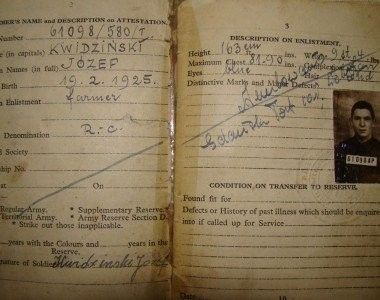 ER'S NAME and DESCRIPTION on ATTESTATION.
Number 61098/580/T
(in capitals) KWIDZIŃSKI
Names (in full) JÓZEF
19. 2. 1925.
Enlistment
farmer
Denomination R.C.
Society
ship No.
at On
Regular Army. * Supplementary Reserve.
Territorial Army. * Army Reserve Section D.
* Strike out those inapplicable.
years with the Colours and years in the
Reserve.
Signature of Soldier Kwidzinski Józef
3
DESCRIPTION ON ENLISTMENT.
Height 163 cm ins. W
Maximum Chest 87-90 ins.
Eyes blue Hair blond
Distinctive Marks and Minor Defects
610984P
CONDITION ON TRANSFER TO RESERVE.
Found fit for
Defects or History of past illness which should be enquire
into if called up for Service
Date 19